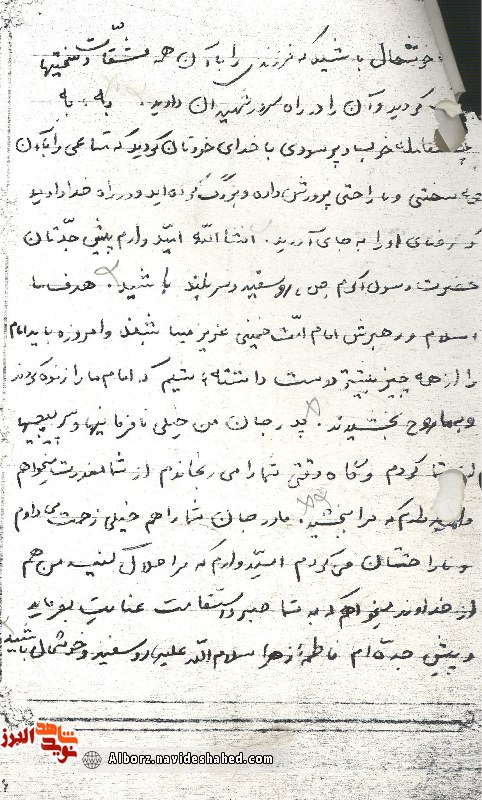 خوشحال باشید که فرزندی را با آن همه مشقات و سختیها
کردید و آن را در راه سرور شهیدان دادید. به به
چه معامله خوب و پرسودی با خدای خودتان کردید که شما عمری را با آن
همه سختی و ناراحتی پرورش داده و بزرگ کرده‌اید و در راه خدا دادید
که رضای او را به جای آورید. انشاءالله امید وارم پیش جدتان
حضرت رسول اکرم (ص) رو سفید و سر بلند باشید. هدف ما
اسلام و رهبرش امام امت خمینی عزیز میباشد و امروزه باید امام
را از همه چیز بیشتر دوست داشته باشیم که امام ما را زنده کردند
و بما روح بخشیدند. پدر جان من خیلی نافرمانیها و سرپیچیها
از شما کردم و گاه وقتی شما را می رنجاندم از شما معذرت میخواهم
و امیدوارم که مرا ببخشید. مادر جان شما را هم خیلی زحمت می دادم
و ناراحتتان می کردم امید وارم که مرا حلال کنید من هم
از خداوند میخواهم که به شما صبر و استقامت عنایت بفرماید
و پیش جده ام فاطمه زهرا سلام الله علیها رو سفید و خوشحال باشید
شاهد
نوید
البرز
Alborz.navideshahed.com